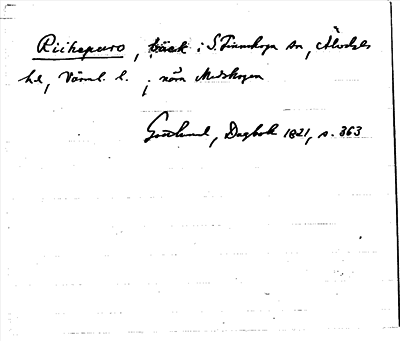 Riihepuro, bäck i S. Finnskoga sn, Älvdals
hd, Värml. l.; nära Medskogen
Gottlund, Dagbok 1821, s. 363